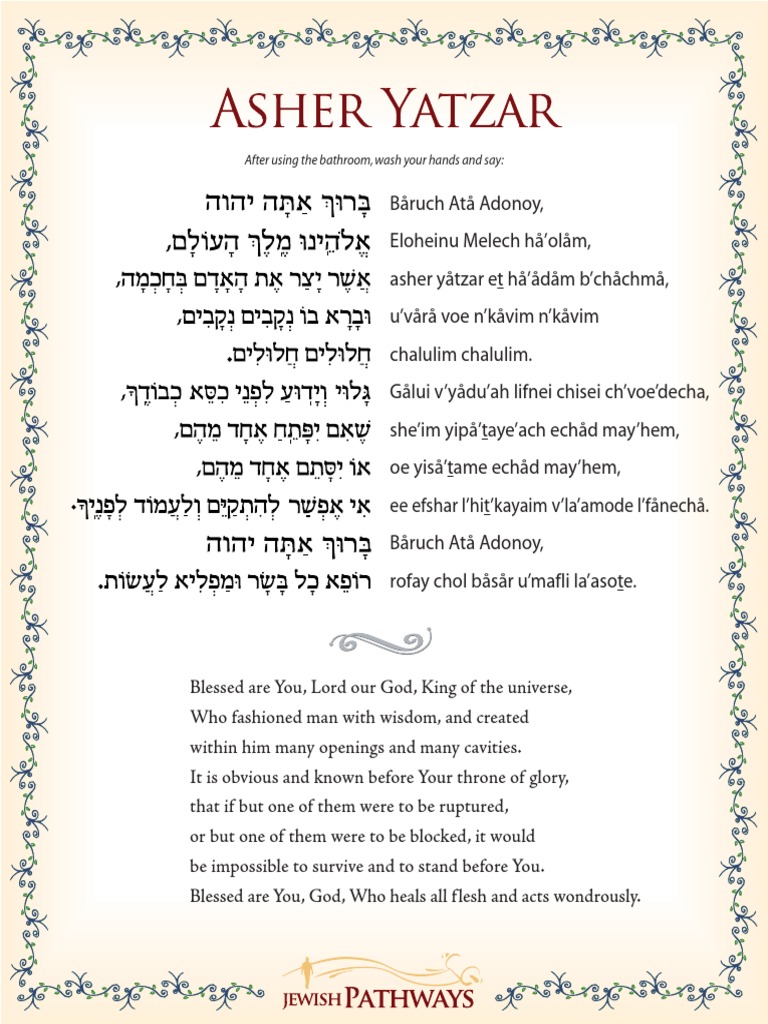 ASHER YATZAR
After using the bathroom, wash your hands and say:
בָּרוּךְ אַתָּה יהוה
Båruch Atå Adonoy,
אֱלֹהֵֽינוּ מֶֽלֶךְ הָעוֹלָם,
Eloheinu Melech hå’olåm,
אֲשֶׁר יָצַר אֶת הָאָדָם בְּחָכְמָה,
asher yåtzar et̲ hå’ådåm b’chåchmå,
וּבָרָא בוֹ נְקָבִים נְקָבִים,
u’vårå voe n’kåvim n’kåvim
חֲלוּלִים חֲלוּלִים.
chalulim chalulim.
גָּלוּי וְיָדֽוּעַ לִפְנֵי כִסֵּא כְבוֹדֶֽךָ,
Gålui v’yådu’ah lifnei chisei ch’voe’decha,
שֶׁאִם יִפָּתֵֽחַ אֶחָד מֵהֶם,
she’im yipå’t̲aye’ach echåd may’hem,
אוֹ יִסָּתֵם אֶחָד מֵהֶם,
oe yiså’t̲ame echåd may’hem,
אִי אֶפְשַׁר לְהִתְקַיֵּם וְלַעֲמוֹד לְפָנֶֽיךָ.
ee efshar l’hit̲’kayaim v’la’amode l’fånechå.
בָּרוּךְ אַתָּה יהוה
Båruch Atå Adonoy,
רוֹפֵא כָל בָּשָׂר וּמַפְלִיא לַעֲשׂוֹת.
rofay chol båsår u’mafli la’asot̲e.
Blessed are You, Lord our God, King of the universe,
Who fashioned man with wisdom, and created
within him many openings and many cavities.
It is obvious and known before Your throne of glory,
that if but one of them were to be ruptured,
or but one of them were to be blocked, it would
be impossible to survive and to stand before You.
Blessed are You, God, Who heals all flesh and acts wondrously.
JEWISH PATHWAYS